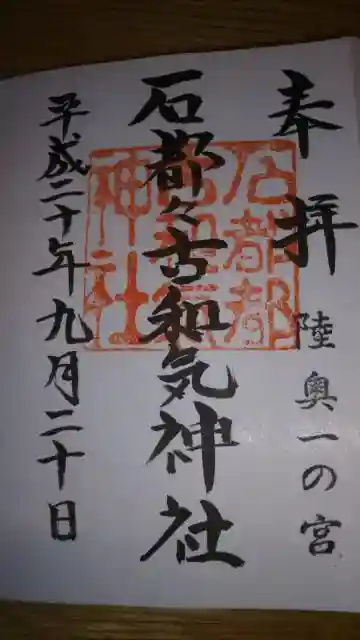 奉拝
陸奥一の宮
石都々古和気神社
平成二十年九月二十日
石都都
古和氣
神社